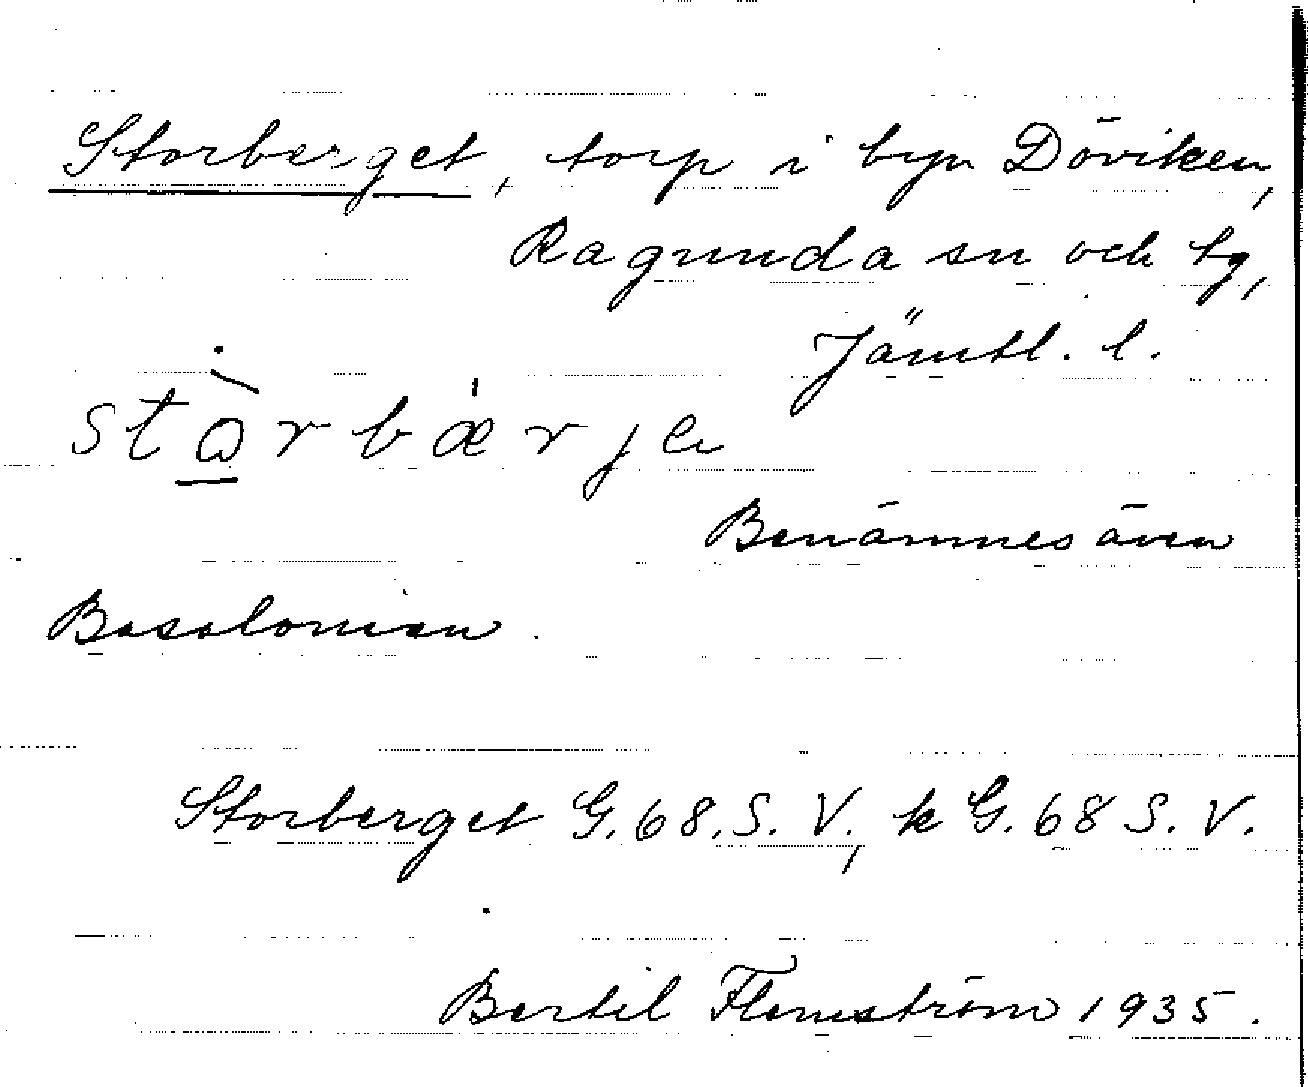 Storberget, torp i byn Döviken,
Ragunda sn och tg,
Jämtl. l.
stɷ̀rbæ̍rje
Benämnes även
Basalonien.
Storberget G.68.S.V., k G.68 S.V.
Bertil Flemström 1935.